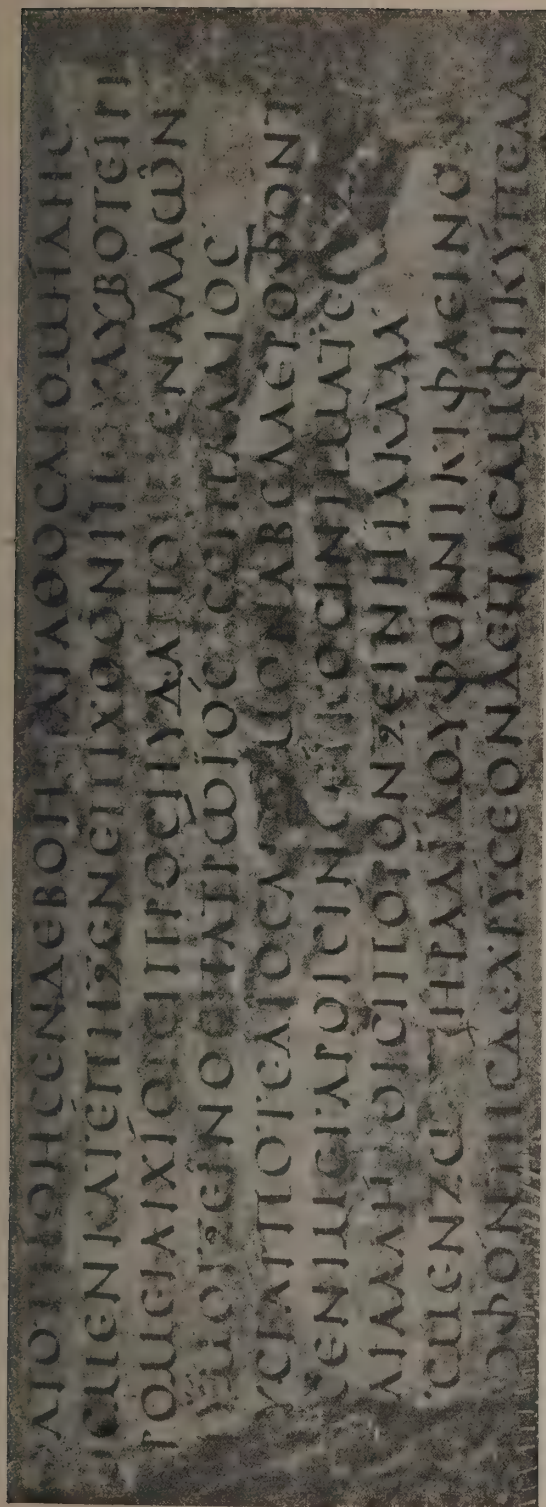 ΑΤΟΓΗΘΗϹΕΝΔΕΒΟΗΝΑΓΑΘΟϹΔΙΟΜΗΔΗϹ
ΟϹΜΕΝΚΑΤΕΠΗΞΕΝΕΠΙΧΘΟΝΙΠΟΥΛΥΒΟΤΕΙΡΗ
ΡΟΜΕΙΛΙΧΙΟΙϹΙΠΡΟϹΗΥΔΑΠΟΙΜΕΝΑΛΑΩΝ
ΥΜΟΙΞΕΙΝΟϹΠΑΤΡΩΙΟϹΕϹϹΙΠΑΛΑΙΟϹ
ΥϹΓΑΡΠΟΤΕΔΙΟϹΑΜΥΜΟΝΑΒΕΛΛΕΡΟΦΟΝΤ
ϹΕΝΙΜΕΓΑΡΟΙϹΙΝΕΕΙΚΟϹΙΝΗΜΑΤΕΡ
ΑΙΑΛΛΗΛΟΙϹΙΠΟΡΟΝΞΕΙΝΗΙΑΚΑΛΑ
ϹΜΕΝΖΩϹΤΗΡΑΔΙΔΟΥΦΟΙΝΙΚΙΦΑΕΙΝΟ
ΟΦΟΝΤΗϹΔΕΧΡΥϹΕΟΝΔΕΠΑϹΑΜΦΙΚΥΠΕΛΛ